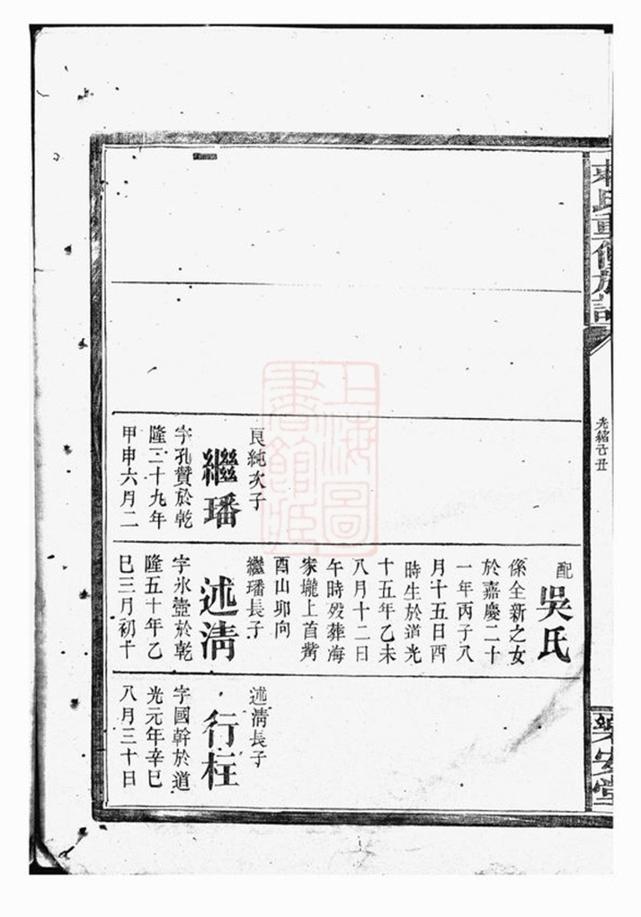 氏重修族譜
光緒辛丑
樂安堂
上海圖
書館藏
良純次子
繼璠
字孔贊於乾
隆二十九年
甲申六月二
配
吳氏
係全新之女
於嘉慶二十
一年丙子八
月十五日酉
時生於道光
十五年乙未
八月十二日
午時歿葬海
家壠上首觜
酉山卯向
繼璠長子
述清
字氷壺於乾
隆五十年乙
巳三月初十
述清長子
行柱
字國幹於道
光元年辛巳
八月三十日